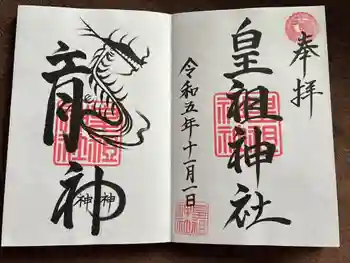 奉拝
皇祖神社
令和五年十一月一日
龍神
神神